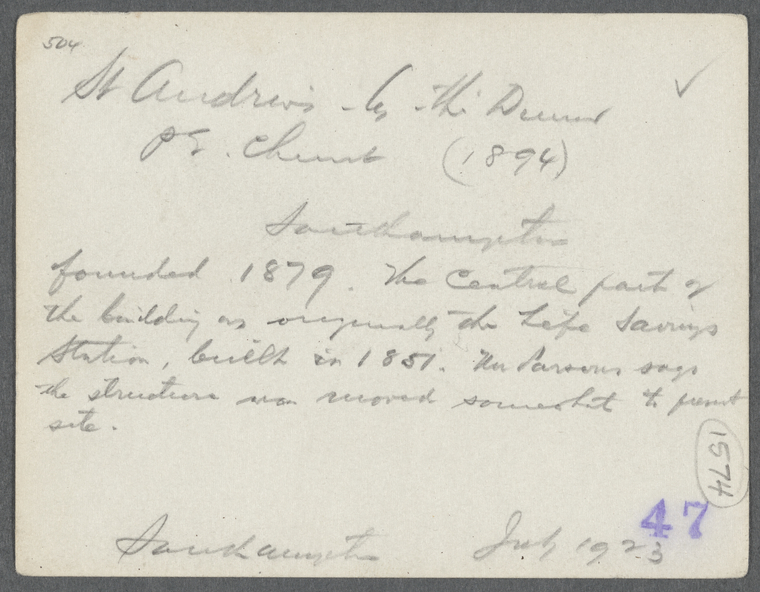 504
St Andrews by the Dunes
P E. Church (1894)
Southampton
founded 1879. The Central part of
the building was originally the Life Savings
Station, built in 1851. Mr Parsons says
the structure was moved somewhat to present
site.
1574
47
Southampton July 1923